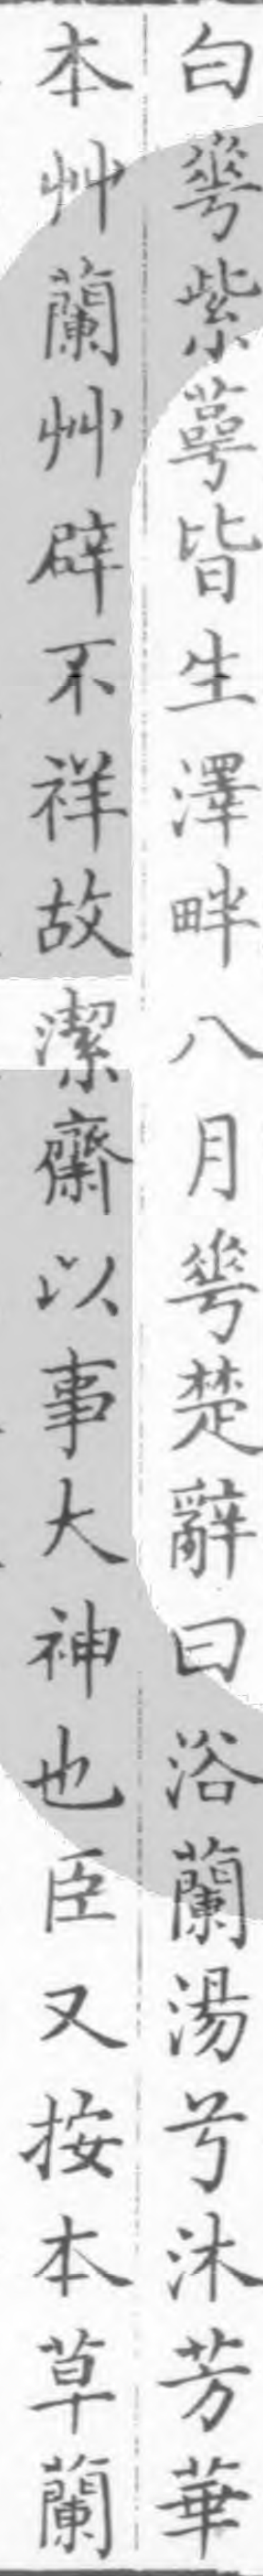 白𠌶紫蕚皆生澤畔八月𠌶楚辭曰浴蘭湯兮沐芳華
本艸蘭艸辟不祥故潔齋以事大神也臣又按本草蘭